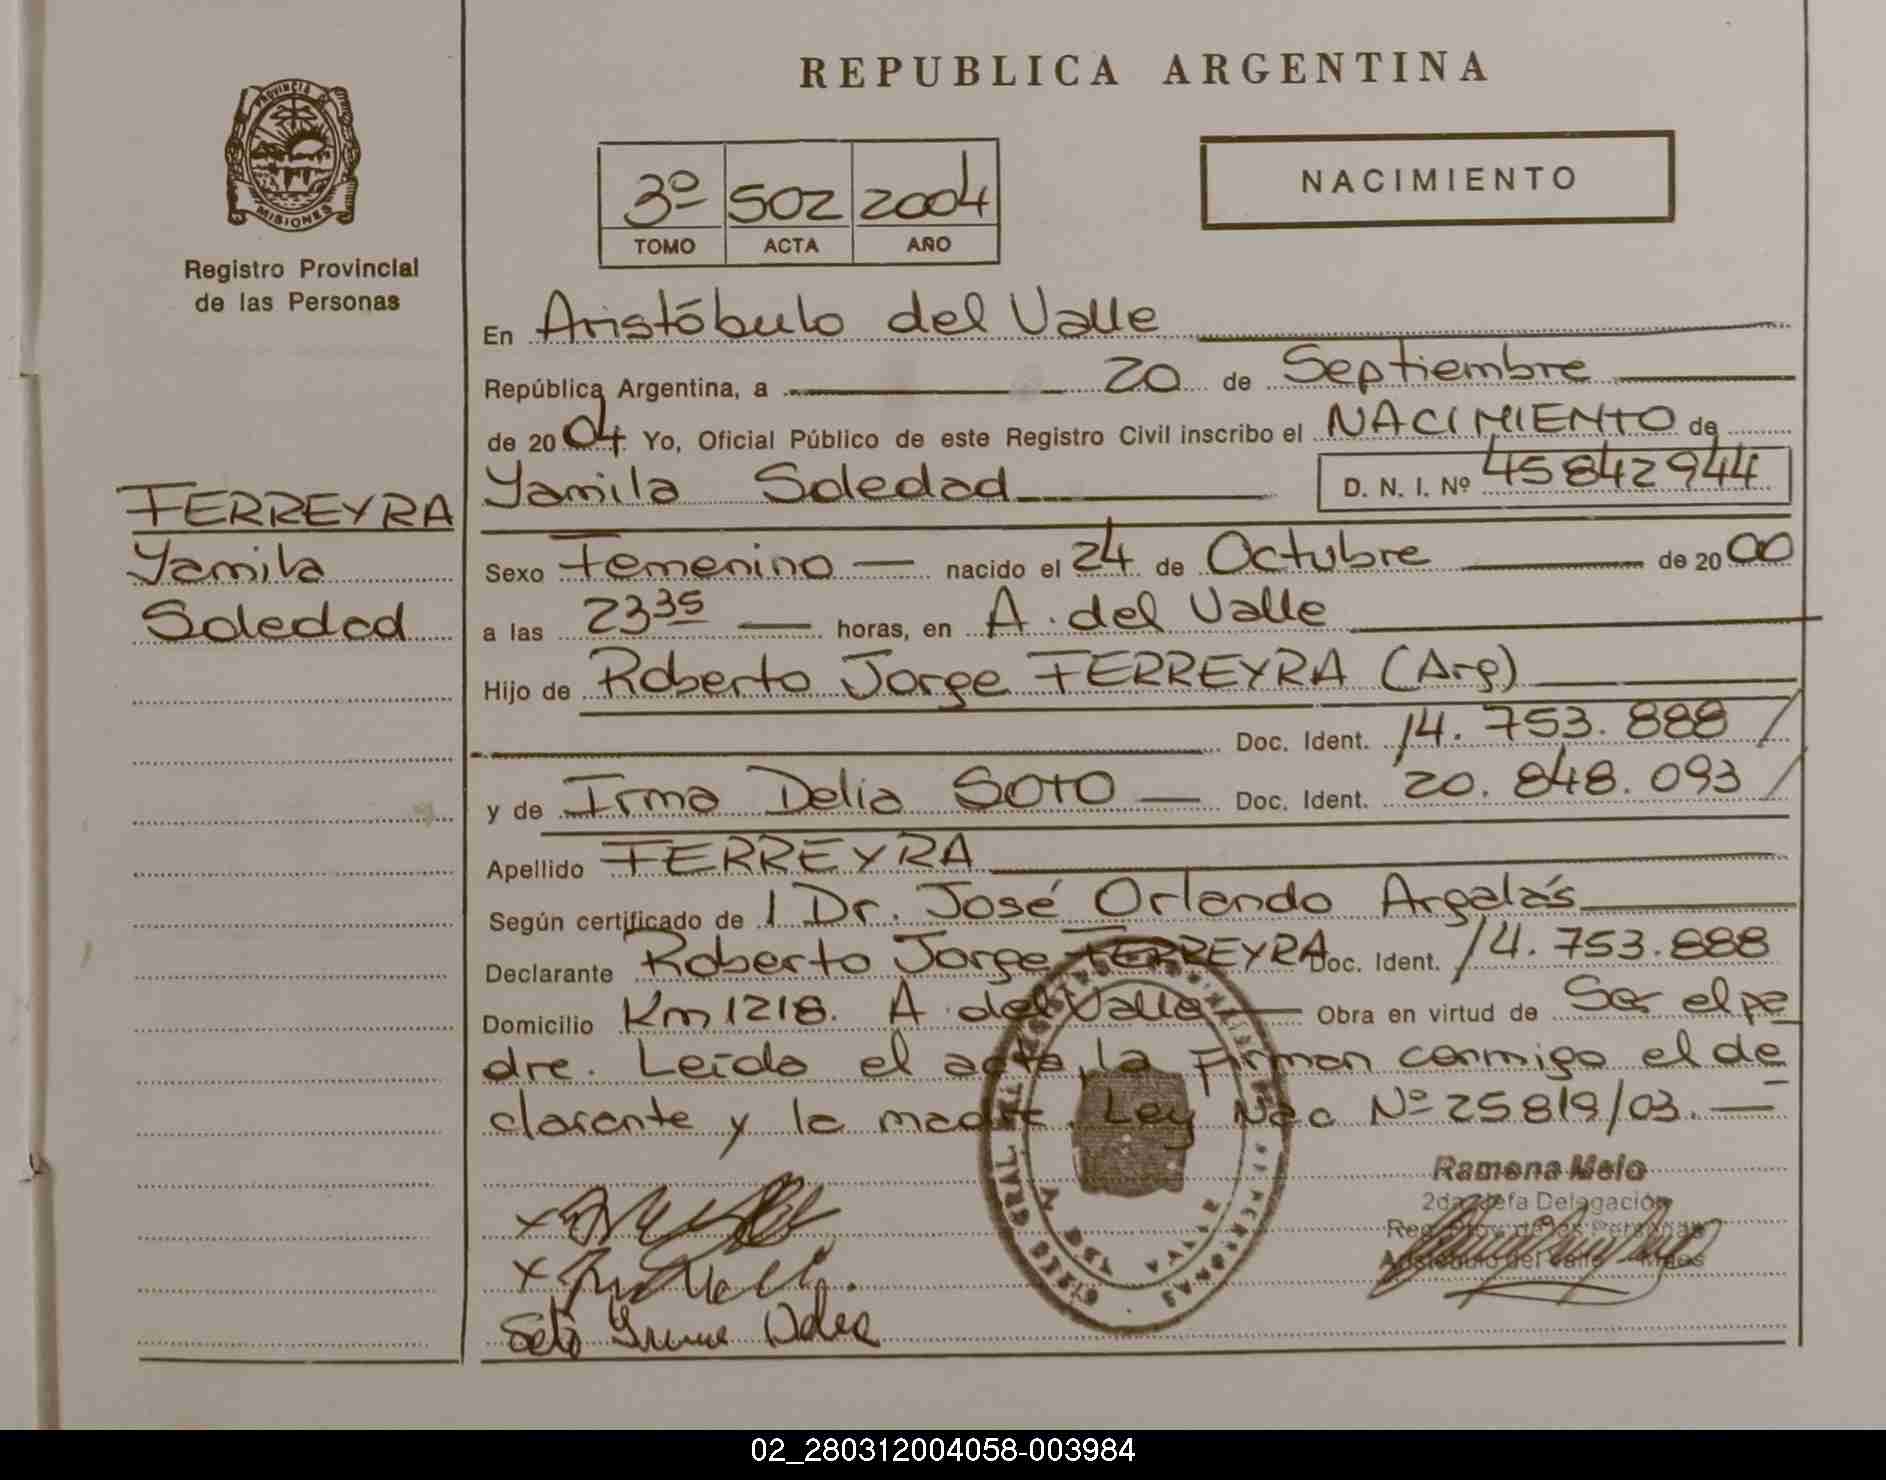 REPUBLICA ARGENTINA
PROVINCIA DE
MISIONES
Registro Provincial
de las Personas
3º 502 2004
TOMO ACTA AÑO
NACIMIENTO
FERREYRA
Yamila
Soledad
En Aristóbulo del Valle
República Argentina, a 20 de Septiembre
de 2004 Yo, Oficial Público de este Registro Civil inscribo el NACIMIENTO de
Yamila Soledad D. N. I. Nº 45842944
Sexo Femenino nacido el 24 de Octubre de 2000
a las 23 35 horas, en A. del Valle
Hijo de Roberto Jorge FERREYRA (Arg)
Doc. Ident. 14.753.888
y de Irma Delia SOTO Doc. Ident. 20.848.093
Apellido FERREYRA
Según certificado de 1 Dr. José Orlando Argalás
Declarante Roberto Jorge FERREYRA Doc. Ident. 14.753.888
Domicilio Km 1218. A del Valle Obra en virtud de Ser el pa
dre. Leída el acta, la firman conmigo el de
clarante y la madre. Ley Nac Nº 25819/03.
Ramona Melo
2da Jefa Delegación
Reg. Prov. de las Personas
Aristóbulo del Valle - Mnes
Soto Irma Delia
02_280312004058-003984